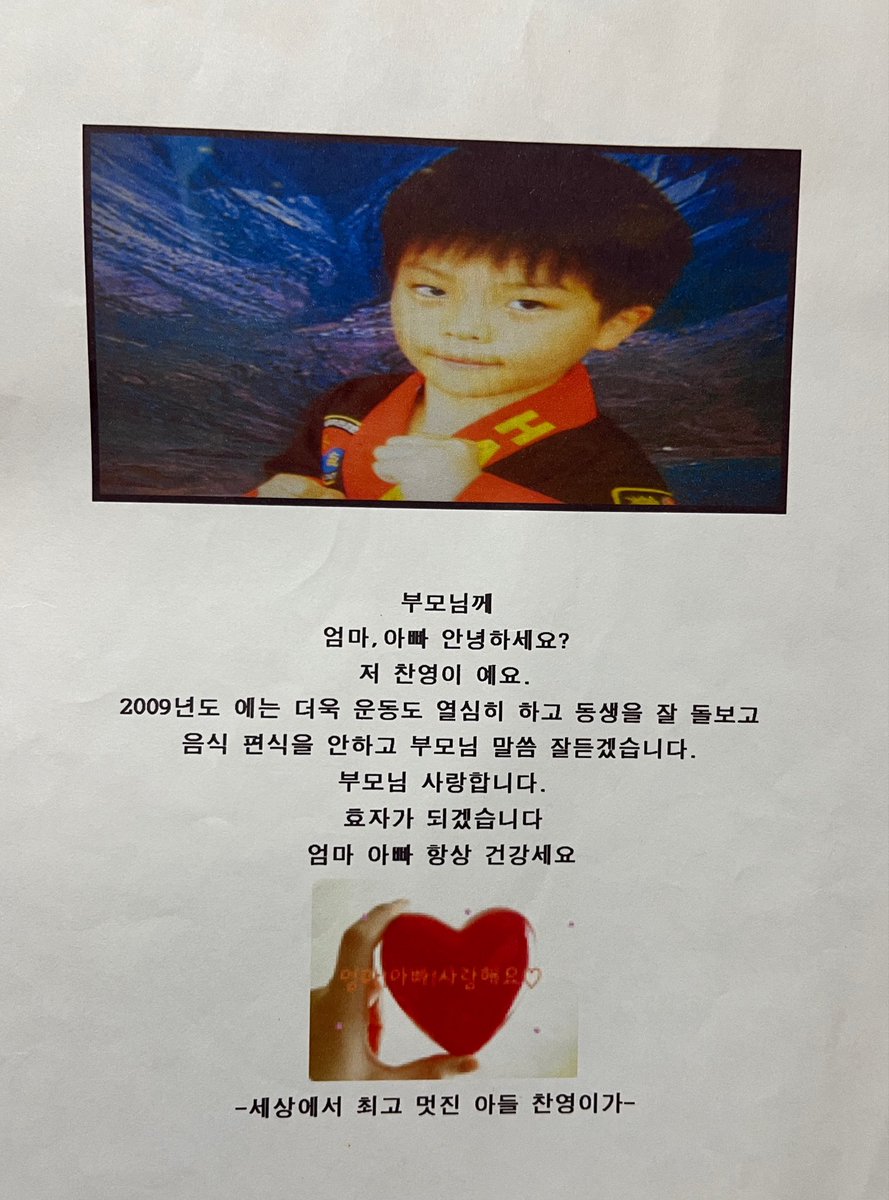 부모님께
엄마,아빠 안녕하세요?
저 찬영이 예요.
2009년도 에는 더욱 운동도 열심히 하고 동생을 잘 돌보고
음식 편식을 안하고 부모님 말씀 잘듣겠습니다.
부모님 사랑합니다.
효자가 되겠습니다
엄마 아빠 항상 건강세요
엄마 아빠 사랑해요♡
-세상에서 최고 멋진 아들 찬영이가-